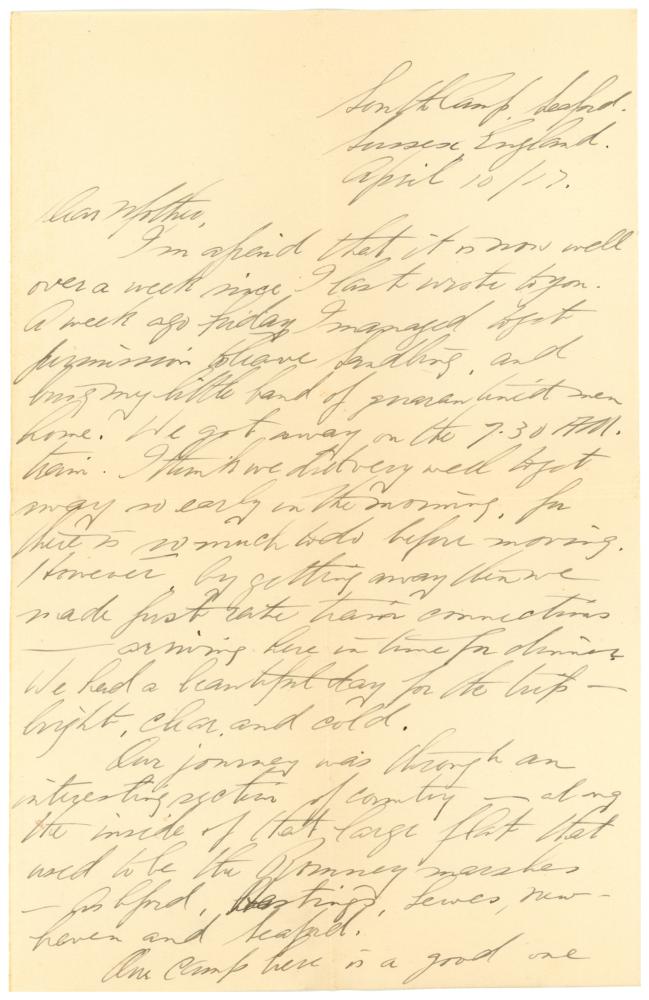 South Camp, Seaford.
Sussex, England.
April 10/17.
Dear Mother,
I'm afraid that it is now well
over a week since I last wrote to you.
A week ago Friday I managed to get
permission to leave Sandling, and
bring my little band of quarantined men
home. We got away on the 7.30 A.M.
train. I think we did very well to get
away so early in the morning, for
there is so much to do before moving.
However, by getting away then we
made first rate train connections
— arriving here in time for dinner.
We had a beautiful day for the trip —
bright, clear, and cold.
Our journey was through an
interesting section of country — along
the inside of that large flat that
used to be the Romney marshes
— Ashford, Hastings, Lewes, New-
haven and Seaford.
Our camp here is a good one